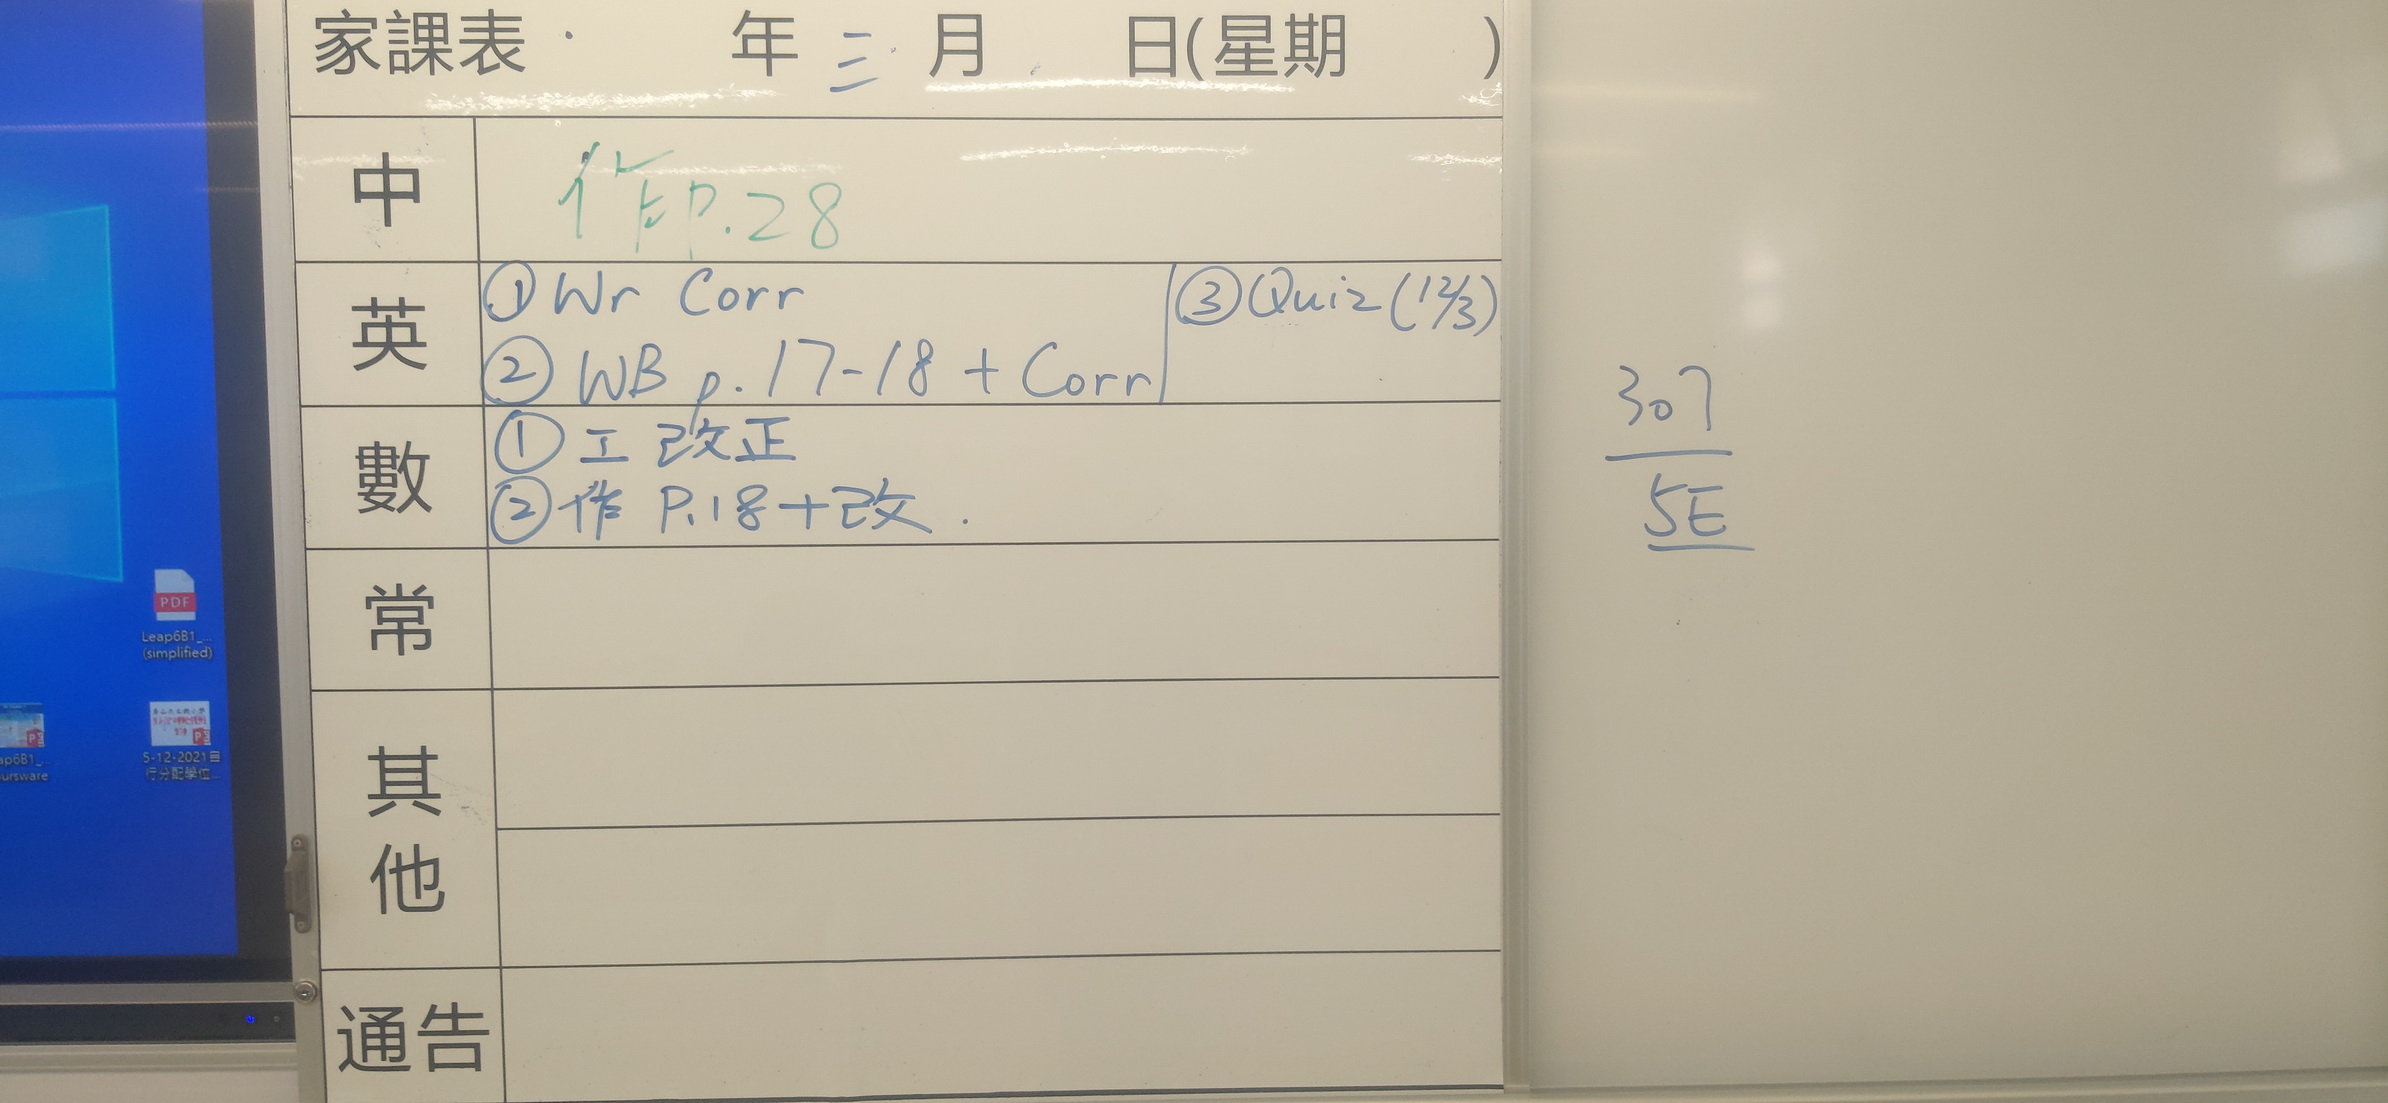 家課表 年 三 月 日(星期 )
中 作P.28
英 ① Wr Corr ③ Quiz (12/3)
② WB p.17-18 + Corr
數 ① 工 改正
② 作 P.18+改.
常
其他
通告
307
5E
PDF
Leap6B1_...
(simplified)
ap6B1_...
oursware
5-12-2021自
行分配學位...